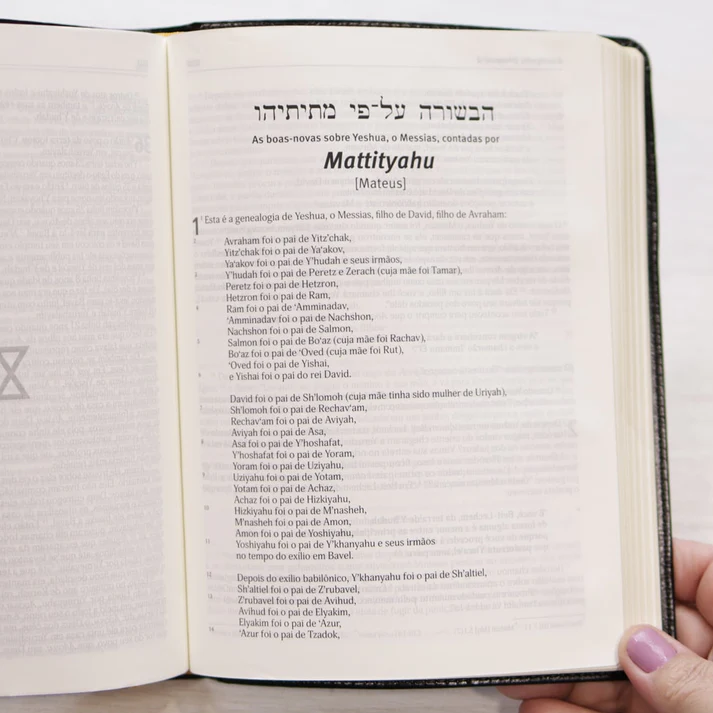 הבשורה על־פי מתיתיהו
As boas-novas sobre Yeshua, o Messias, contadas por
Mattityahu
[Mateus]
1 ¹ Esta é a genealogia de Yeshua, o Messias, filho de David, filho de Avraham:
2 Avraham foi o pai de Yitz'chak,
Yitz'chak foi o pai de Ya'akov,
Ya'akov foi o pai de Y'hudah e seus irmãos,
3 Y'hudah foi o pai de Peretz e Zerach (cuja mãe foi Tamar),
Peretz foi o pai de Hetzron,
Hetzron foi o pai de Ram,
4 Ram foi o pai de 'Amminadav,
'Amminadav foi o pai de Nachshon,
Nachshon foi o pai de Salmon,
5 Salmon foi o pai de Bo'az (cuja mãe foi Rachav),
Bo'az foi o pai de 'Oved (cuja mãe foi Rut),
'Oved foi o pai de Yishai,
6 e Yishai foi o pai do rei David.
David foi o pai de Sh'lomoh (cuja mãe tinha sido mulher de Uriyah),
7 Sh'lomoh foi o pai de Rechav'am,
Rechav'am foi o pai de Aviyah,
Aviyah foi o pai de Asa,
8 Asa foi o pai de Y'hoshafat,
Y'hoshafat foi o pai de Yoram,
Yoram foi o pai de Uziyahu,
9 Uziyahu foi o pai de Yotam,
Yotam foi o pai de Achaz,
Achaz foi o pai de Hizkiyahu,
10 Hizkiyahu foi o pai de M'nasheh,
M'nasheh foi o pai de Amon,
Amon foi o pai de Yoshiyahu,
11 Yoshiyahu foi o pai de Y'khanyahu e seus irmãos
no tempo do exílio em Bavel.
12 Depois do exílio babilônico, Y'khanyahu foi o pai de Sh'altiel,
Sh'altiel foi o pai de Z'rubavel,
13 Z'rubavel foi o pai de Avihud,
Avihud foi o pai de Elyakim,
Elyakim foi o pai de 'Azur,
14 'Azur foi o pai de Tzadok,